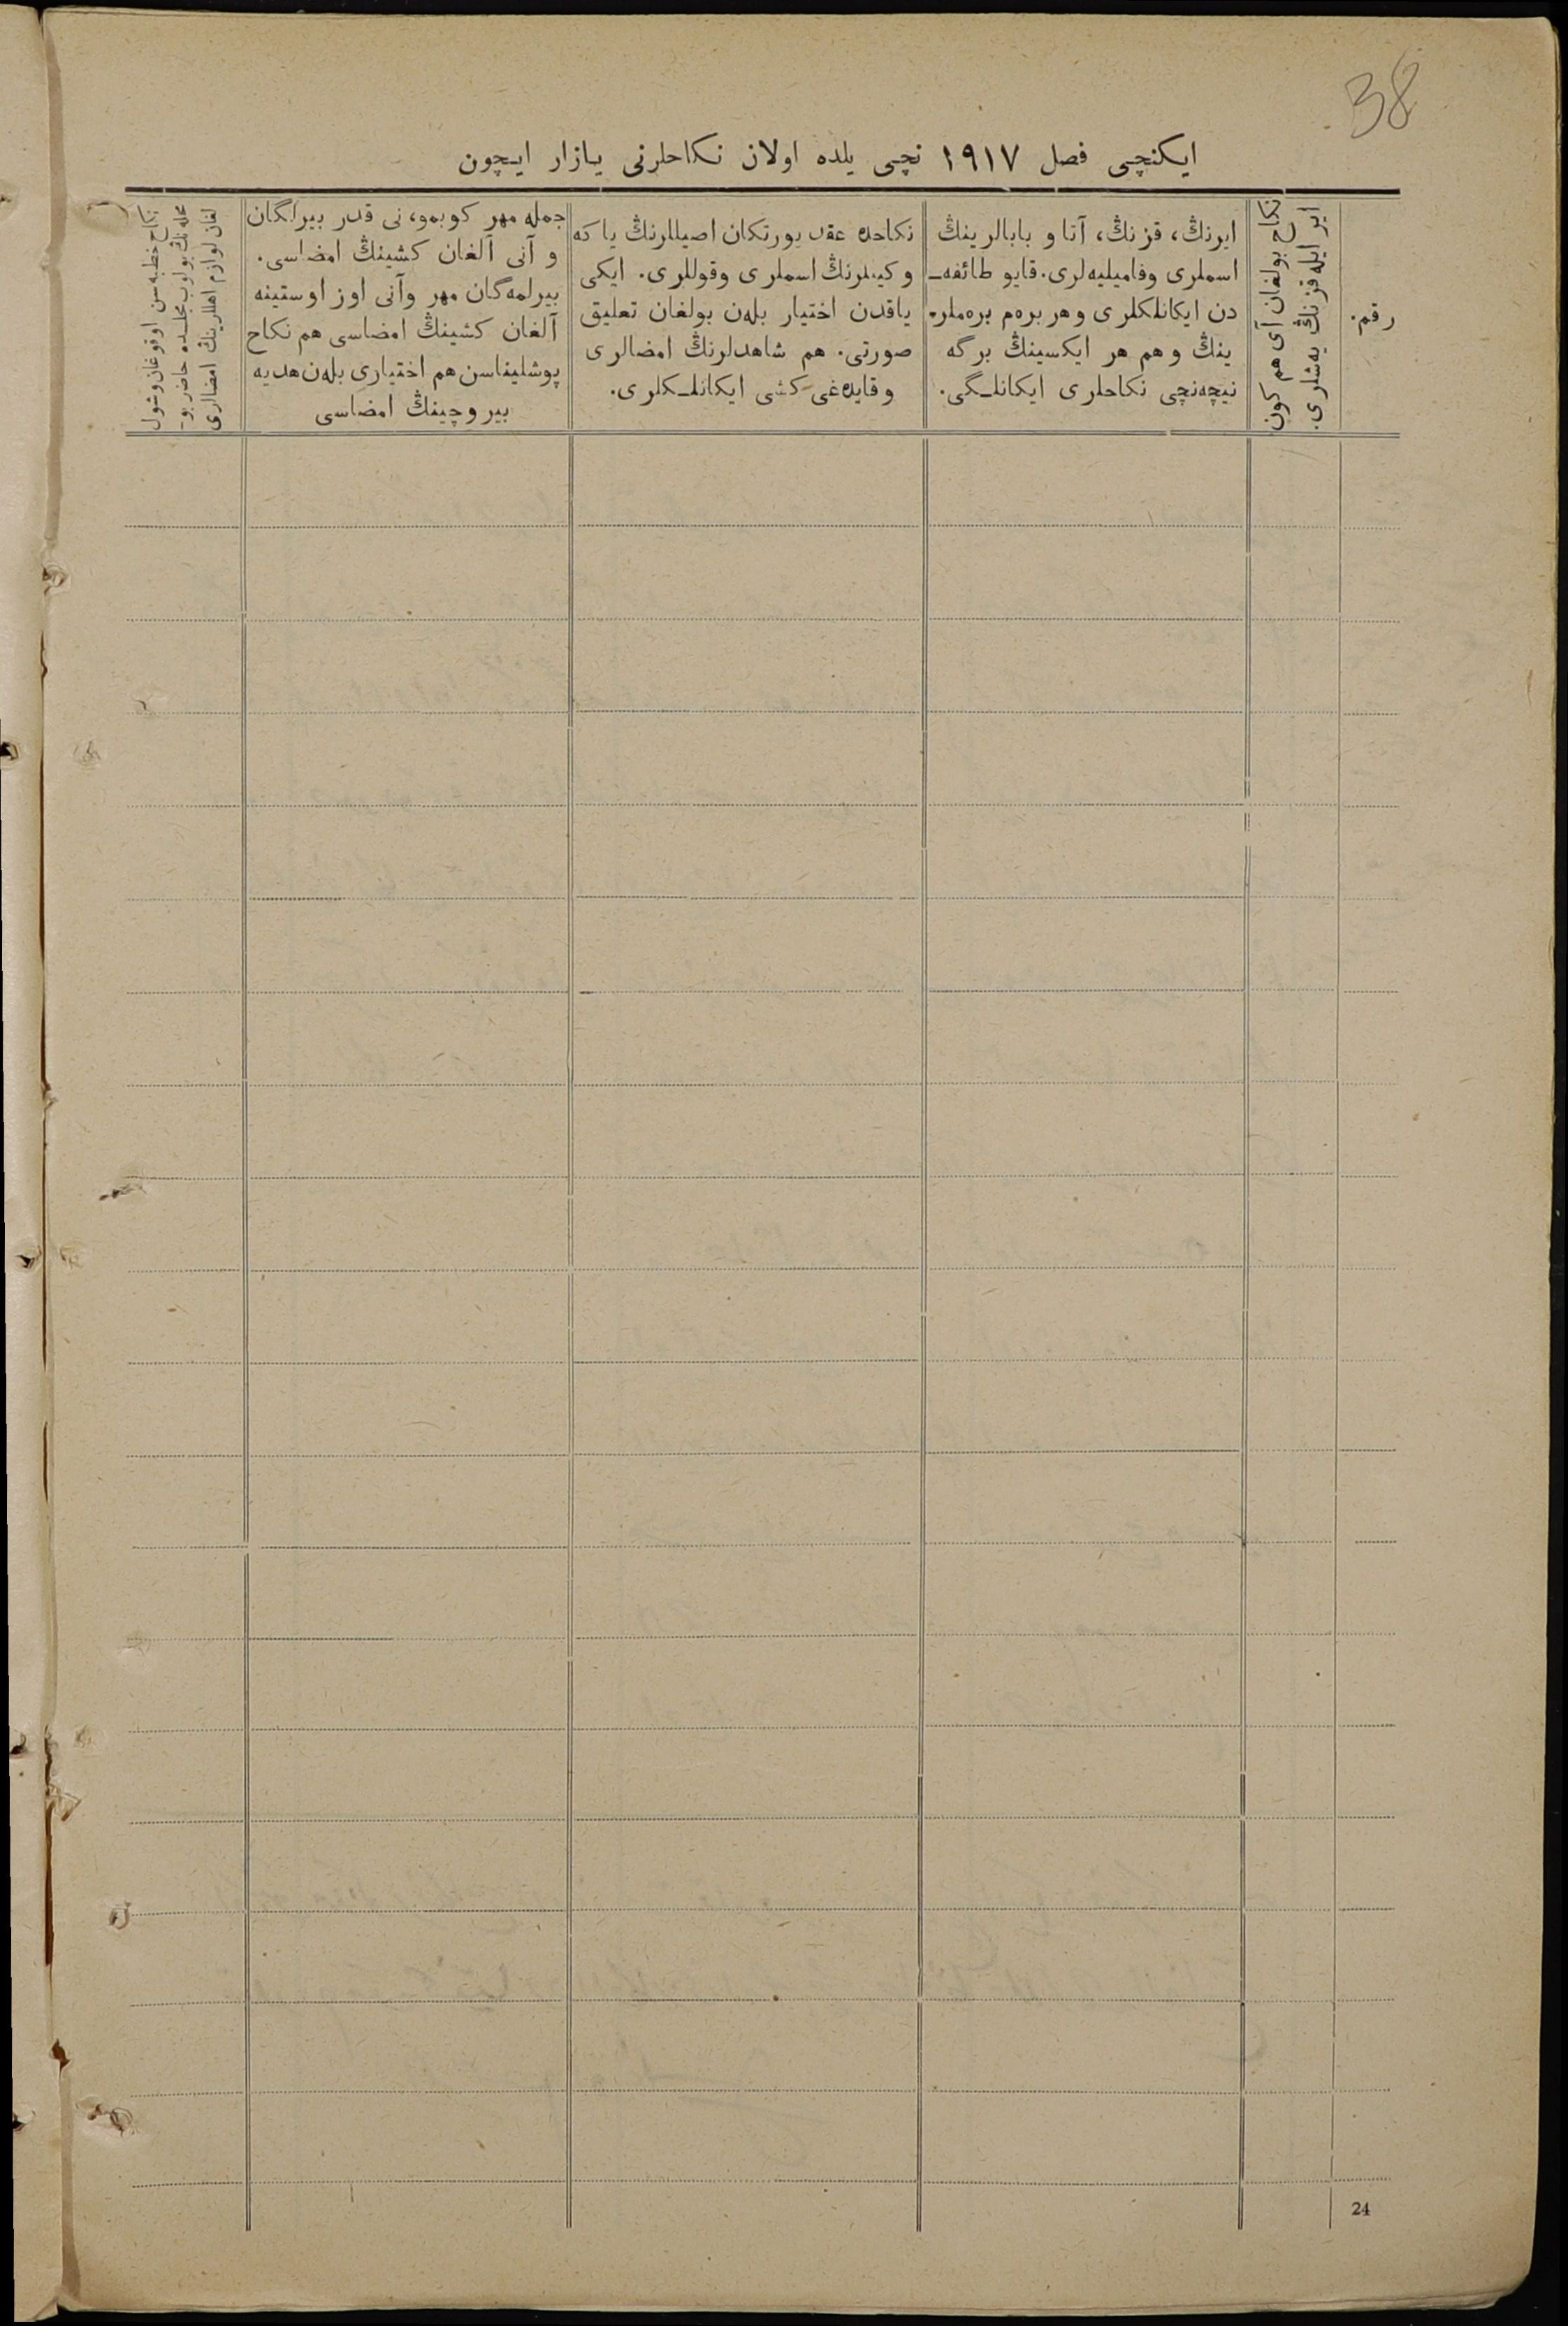 38
ایکنچی فصل ١٩١٧ نچی یلده اولان نکاحلرنی یازار ایچون
رقم.
نکاح بولغان آی هم کون
ایر ایله قزنڭ یه‌شلری.
ایرنڭ، قزنڭ، آتا و بابالرینڭ
اسملری وفامیلیه‌لری. قایو طائفه‌ـ
دن ایکانلکلری وهر بره‌م بره‌ملر.
ینڭ وهم هر ایکسینڭ برگه
نیچه‌نچی نکاحلری ایکانلـگی.
نکاحده عقد یورتکان اصیللرنڭ یا که
وکیللرنڭ اسملری وقوللری. ایکی
یاقدن اختیار بله‌ن بولغان تعلیق
صورتی. هم شاهدلرنڭ امضالری
وقایده‌غی کشی ایکانلـکلری.
جمله مهر کوبمو، نی قدر بیرلگان
و آنی آلغان کشینڭ امضاسی.
بیرلمه‌گان مهر وآنی اوز اوستینه
آلغان کشینڭ امضاسی هم نکاح
پوشلیناسن هم اختیاری بله‌ن هدیه
بیروچینڭ امضاسی
نکاح خطبه‌سن اوقوغان وشول
محله‌نڭ بولوب مجلسده حاضر بو-
لغان لوازم اهللرینڭ امضالری
24